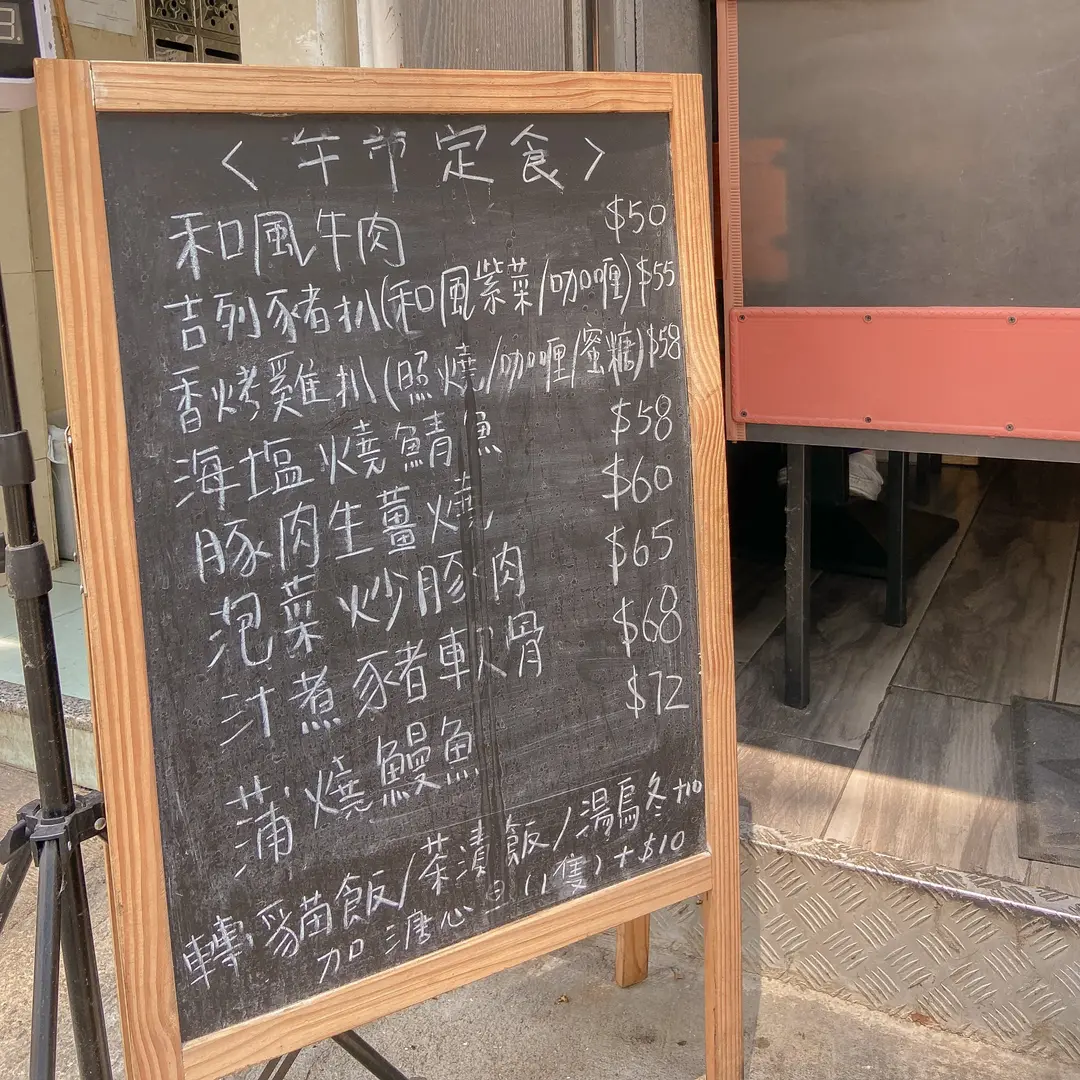 〈午市定食〉
和風牛肉 $50
吉列豬扒(和風紫菜/咖喱) $55
香烤雞扒(照燒/咖喱/蜜糖) $58
海塩燒鯖魚 $58
豚肉生薑燒 $60
泡菜炒豚肉 $65
汁煮豬軟骨 $68
蒲燒鰻魚 $72
轉貓飯/茶漬飯/湯烏冬+10
加溏心旦(1隻)+$10